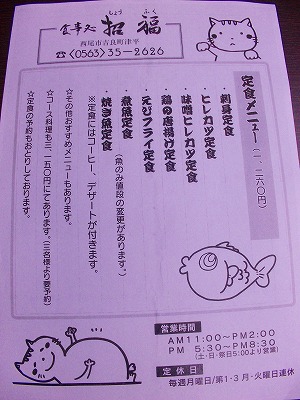 食事処 招福
しょう ふく
西尾市吉良町津平
☎(0563)35-2626
定食メニュー(一、二六〇円)
・刺身定食
・ヒレカツ定食
・味噌ヒレカツ定食
・鶏の唐揚げ定食
・えびフライ定食
・煮魚定食
(魚のみ値段の変更があります。)
・焼き魚定食
※定食にはコーヒー、デザートが付きます。
☆その他おすすめメニューもあります。
☆コース料理も三、一五〇円にてあります。(三名様より要予約)
☆定食の予約もおとりしております。
営業時間
AM11:00~PM2:00
PM 5:30~PM8:30
(土・日・祭日5:00より営業)
定休日
毎週月曜日/第1・3月・火曜日連休